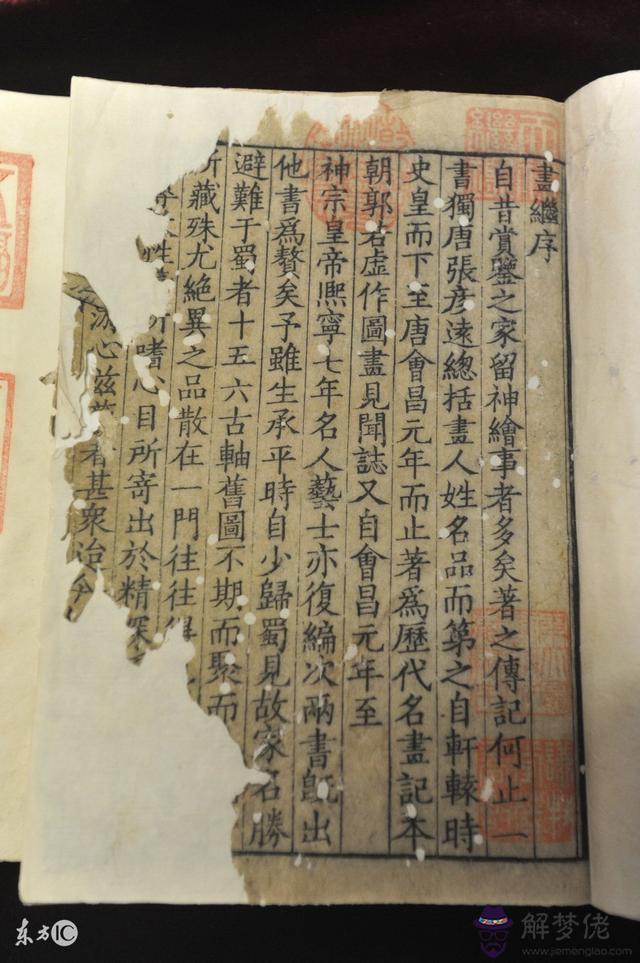 畫繼序
自昔賞鑒之家留神繪事者多矣著之傳記何止一
書獨唐張彦遠總括畫人姓名品而第之自軒轅時
史皇而下至唐會昌元年而止著為歷代名畫記本
朝郭若虛作圖畫見聞誌又自會昌元年至
神宗皇帝熈寧七年名人藝士亦復編次兩書既出
他書為贅矣予雖生承平時自少歸蜀見故家名勝
避難于蜀者十五六古軸舊圖不期而聚而
所藏殊尤絶異之品散在一門往往得
性 所嗜心目所寄出於精深
游心兹 者甚衆迨今
东方IC
解梦佬
www.jiemenglao.com